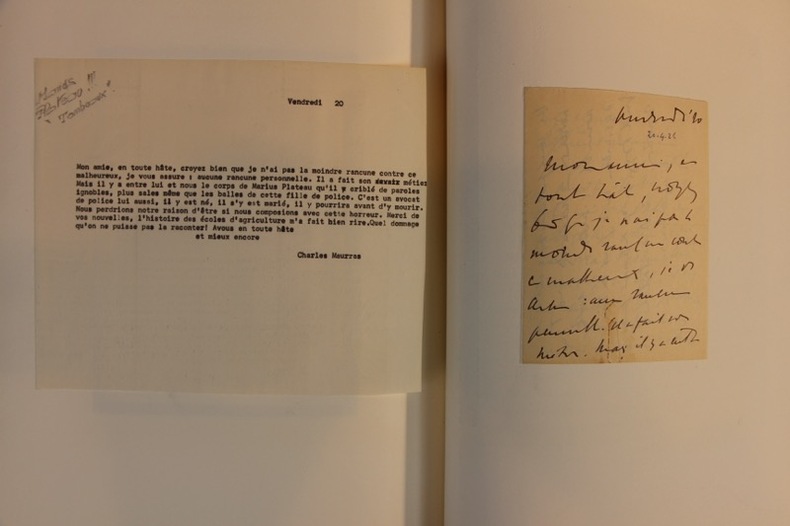 Maurras
"Tombeaux"
Vendredi 20
Mon amie, en toute hâte, croyez bien que je n'ai pas la moindre rancune contre ce
malheureux, je vous assure : aucune rancune personnelle. Il a fait son métier
Mais il y a entre lui et nous le corps de Marius Plateau qu'il a criblé de paroles
ignobles, plus sales même que les balles de cette fille de police. C'est un avocat
de police lui aussi, il y est né, il s'y est marié, il y pourrira avant d'y mourir.
Nous perdrions notre raison d'être si nous composions avec cette horreur. Merci de
vos nouvelles, l'histoire des écoles d'agriculture m'a fait bien rire.Quel dommage
qu'on ne puisse pas la raconter! Avous en toute hâte
et mieux encore
Charles Maurras
Vendredi 20
Mon amie, en
toute hâte, croyez
bien que je n'ai pas la
moindre rancune contre
ce malheureux, je vs
assure : aucune rancune
personnelle. Il a fait son
métier. Mais il y a entre